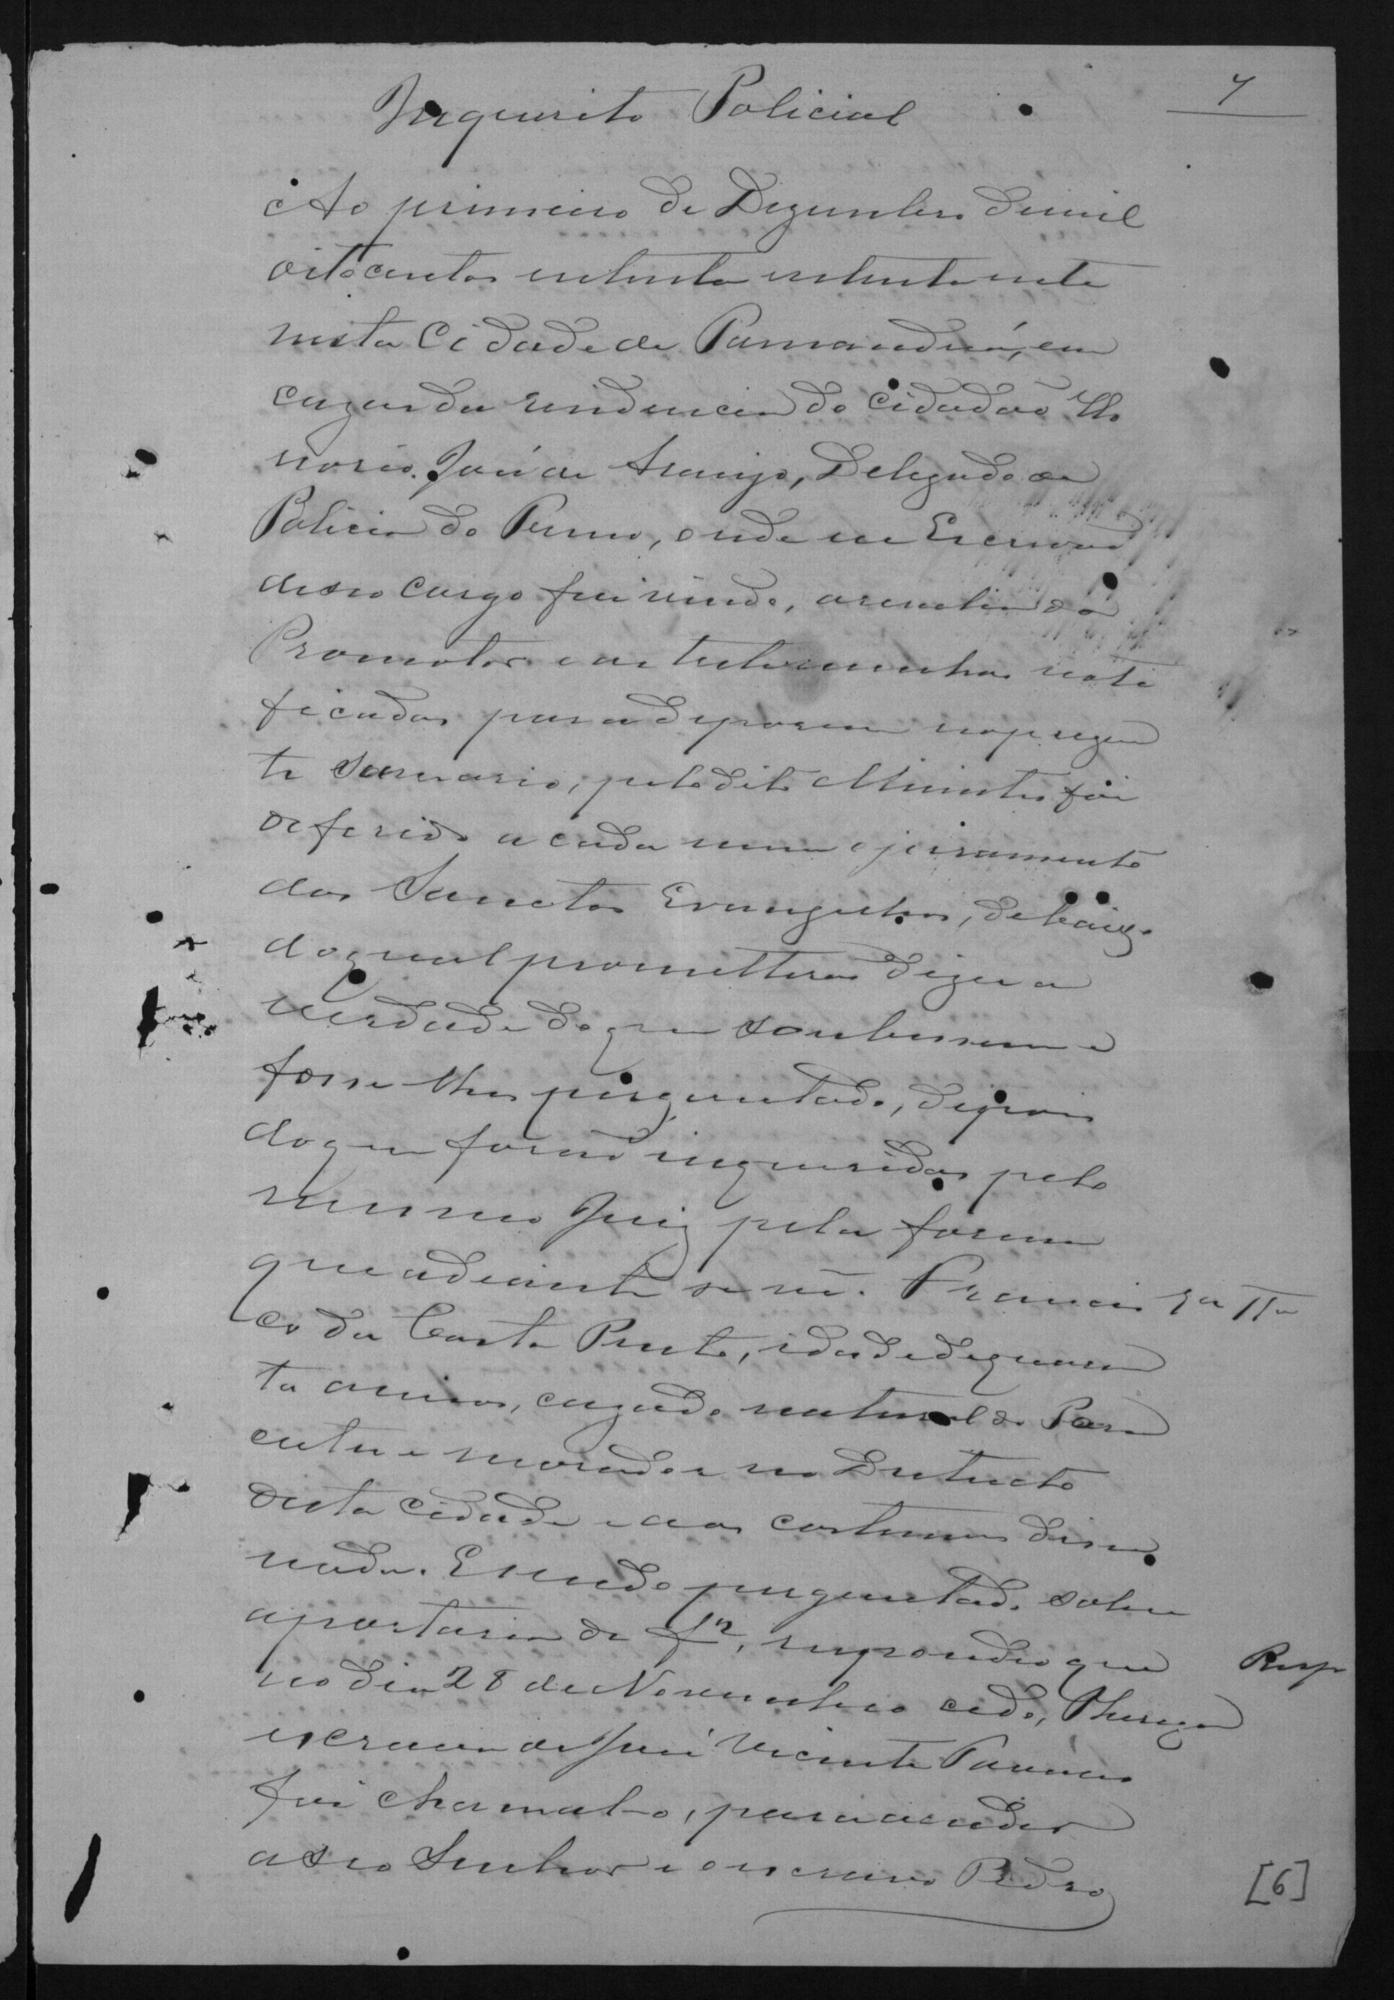 7
Inquerito Policial
Ao primeiro de Dezembro de mil
oito centos setenta e sete
nesta Cidade de Parnandiuá, em
cazas da residencia do Cidadão Ho
norio José de Araujo, Delegado de
Policia do Termo, onde eu Escrivão
de seo cargo fui vindo, a revelia do
Promotor e as testemunhas noti
ficadas para deporem no prezen
te Sumario, pelo dito Ministro foi
deferido a cada uma o juramento
dos Sanctos Evangelhos, debaixo
do qual prometterão dizer a
verdade do que soubessem e
fosse lhes perguntado, depois
do que forão inqueridas pelo
mesmo Juiz pela forma
que adiante se vê. Francis 1ª Ttª
co da Costa Prente, idade de quaren
ta annos, cazado natural do Para
catu e morador no Districto
desta cidade e aos costumes disse
nada. E sendo perguntado sobre
a portaria de f 2, respondeo que Resp
no dia 28 de Novembro cedo, Thereza
escrava de José Vicente
foi chamal-o, para acudir
a seo Senhor e o escravo Pedro
[6]